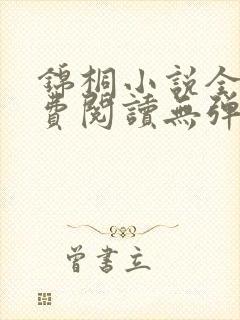 錦桐小說全
費閱讀無彈
曾書立